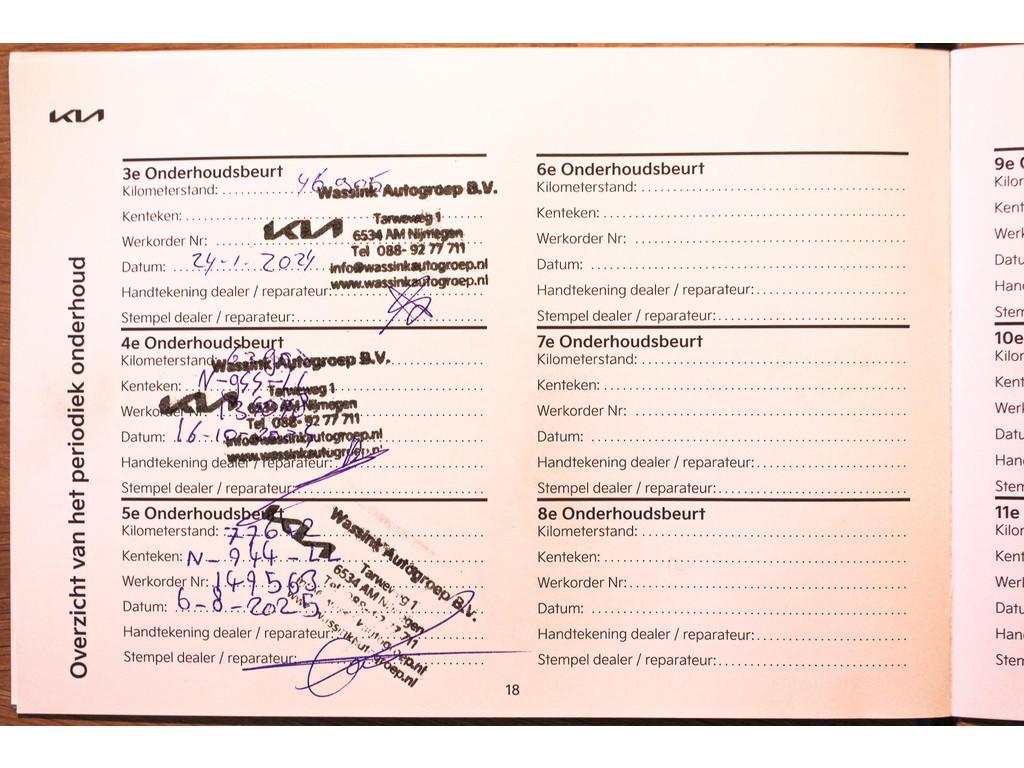 KIA
Overzicht van het periodiek onderhoud
3e Onderhoudsbeurt
Kilometerstand: 46.905
Kenteken:
Werkorder Nr:
Datum: 24-1-2024
Handtekening dealer / reparateur:
Stempel dealer / reparateur:
Wassink Autogroep B.V.
KIA
Tarweweg 1
6534 AM Nijmegen
Tel 088- 92 77 711
info@wassinkautogroep.nl
www.wassinkautogroep.nl
4e Onderhoudsbeurt
Kilometerstand:
Kenteken:
Werkorder Nr:
Datum: 16-10-
Handtekening dealer / reparateur:
Stempel dealer / reparateur:
Wassink Autogroep B.V.
KIA
Tarweweg 1
6534 AM Nijmegen
Tel 088- 92 77 711
info@wassinkautogroep.nl
www.wassinkautogroep.nl
5e Onderhoudsbeurt
Kilometerstand:
Kenteken: N-944-
Werkorder Nr: 149563
Datum: 6-8-2025
Handtekening dealer / reparateur:
Stempel dealer / reparateur:
KIA
Wassink Autogroep B.V.
Tarweweg 1
6534 AM Nijmegen
Tel 088- 92 77 711
wassinkautogroep.nl
www.wassinkautogroep.nl
6e Onderhoudsbeurt
Kilometerstand:
Kenteken:
Werkorder Nr:
Datum:
Handtekening dealer / reparateur:
Stempel dealer / reparateur:
7e Onderhoudsbeurt
Kilometerstand:
Kenteken:
Werkorder Nr:
Datum:
Handtekening dealer / reparateur:
Stempel dealer / reparateur:
8e Onderhoudsbeurt
Kilometerstand:
Kenteken:
Werkorder Nr:
Datum:
Handtekening dealer / reparateur:
Stempel dealer / reparateur:
18
9e O
Kilor
Kent
Werk
Datu
Hand
Stem
10e
Kilom
Kent
Werk
Datu
Hand
Stem
11e
Kilom
Kent
Werk
Datu
Hand
Stem